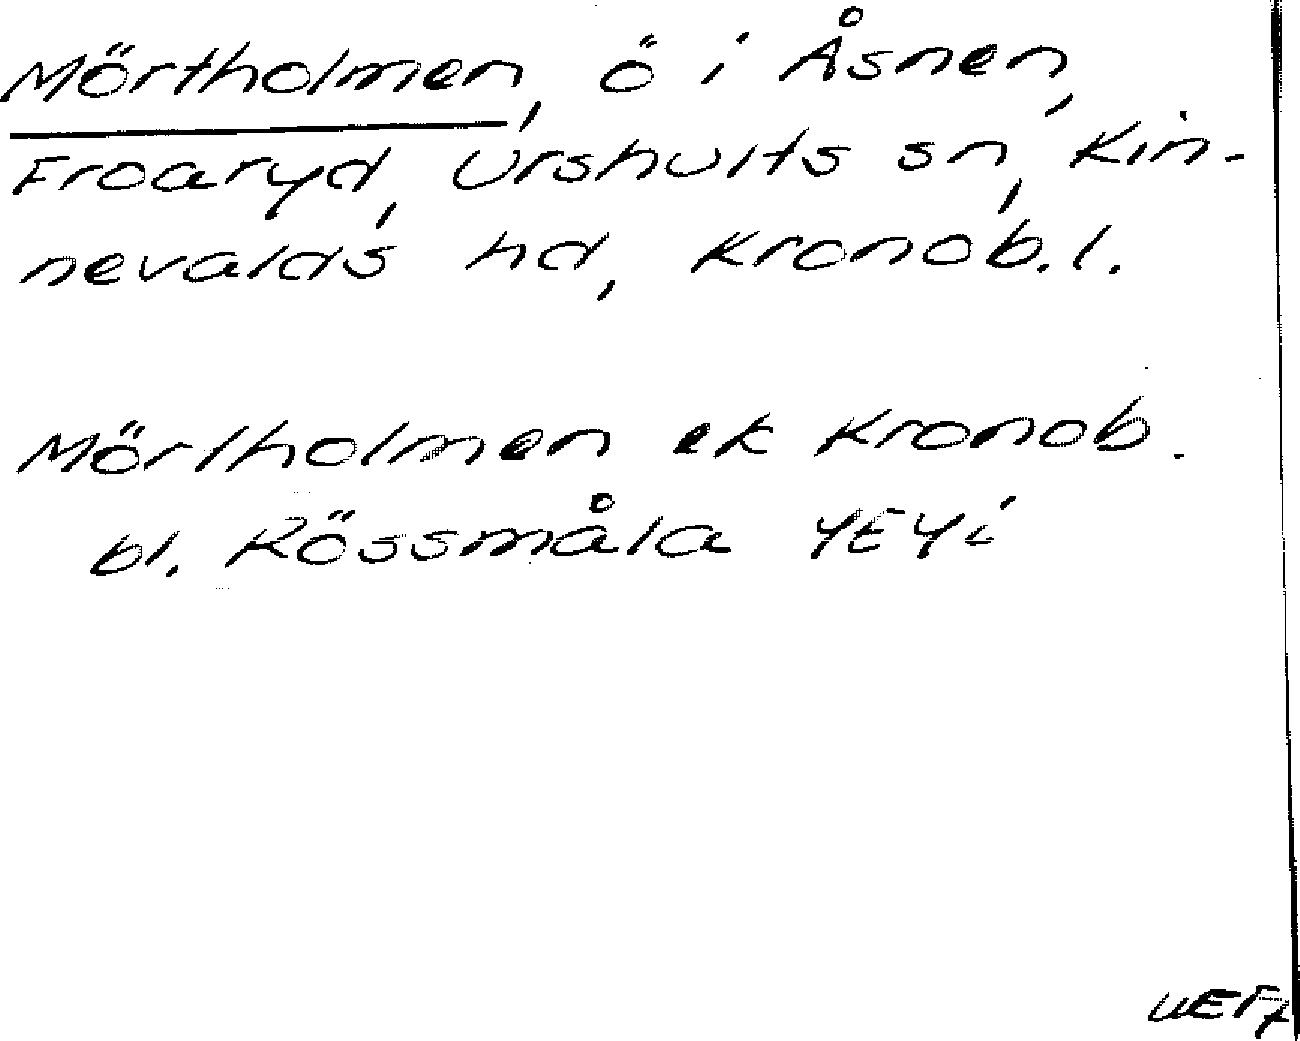 Mörtholmen, ö i Åsnen,
Froaryd, Urshults sn, Kin-
nevalds hd, Kronob. l.
Mörtholmen ek Kronob.
bl. Rössmåla 4E4i